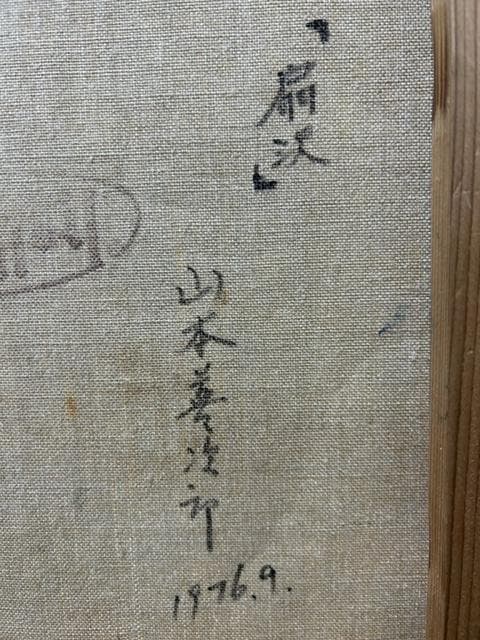 「扇沢」
山本善次郎
1976.9.